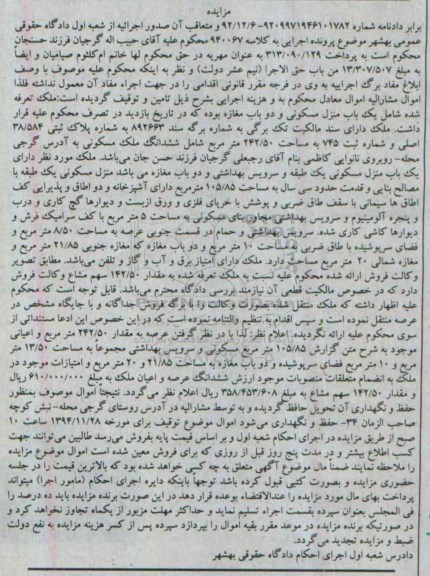 مزایده
برابر دادنامه شماره ۹۲۰۹۹۷۱۹۴۶۱۰۱۷۸۲-۹۲/۱۲/۶ و متعاقب آن صدور اجرائیه از شعبه اول دادگاه حقوقی
عمومی بهشهر موضوع پرونده اجرایی به کلاسه ۹۴۰۰۶۷ محکوم علیه آقای حبیب اله گرجیان فرزند حسنجان
محکوم است به پرداخت ۳۱۳/۰۹۰/۱۲۹ به عنوان مهریه در حق محکوم لها خانم ام کلثوم صیامیان و ایضاً
به مبلغ ۱۳/۳۰۷/۵۰۷ من باب حق الاجرا (نیم عشر دولت) و نظر به اینکه محکوم علیه موصوف با وصف
ابلاغ مفاد برگ اجراییه به وی در فرجه مقرر قانونی اقدامی را در جهت اجراء مفاد آن معمول نداشته فلذا
اموال مشارالیه اموال معادل محکوم به و هزینه اجرایی بشرح ذیل تامین و توقیف گردیده است: ملک تعرفه
شده شامل یک باب منزل مسکونی و دو باب مغازه بوده که در تاریخ بازدید در تصرف محکوم علیه قرار
داشت. ملک دارای سند مالکیت تک برگی به شماره برگه سند ۸۹۲۶۶۳ به شماره پلاک ثبتی ۳۸/۵۸۴
اصلی و شماره ثبت ۷۴۵ به مساحت ۲۴۲/۵۰ متر مربع شامل ششدانگ ملک مسکونی به آدرس گرجی
محله- روبروی نانوایی کاظمی بنام آقای رجبعلی گرجیان فرزند حسن جان می‌باشد. ملک مورد نظر دارای
یک باب منزل مسکونی یک طبقه و سرویس بهداشتی و دو باب مغازه می باشد منزل مسکونی یک طبقه با
مصالح بنایی و قدمت حدود سی سال به مساحت ۱۰۵/۸۵ مترمربع دارای آشپزخانه و دو اطاق و پذیرایی کف
اطاق ها سیمانی با سقف طاق ضربی و پوشش با خرپای فلزی و ورق ایزست و دیوارها گچ کاری و درب
و پنجره آلومینیوم و سرویس بهداشتی مسکونی به مساحت ۵ متر مربع با کف سرامیک فرش و
دیوارها کاشی کاری شده. سرویس بهداشتی و حمام در قسمت جنوبی عرصه به مساحت ۸/۵۰ متر مربع و
فضای سرپوشیده با طاق ضربی مساحت ۱۰ متر مربع و دو باب مغازه که مغازه جنوبی ۲۱/۸۵ متر مربع و
مغازه شمالی ۲۰ متر مربع مساحت دارد. ملک دارای امتیاز برق و آب و گاز و تلفن می‌باشد. مطابق تصویر
وکالت فروش ارائه شده محکوم علیه نسبت به ملک تعرفه شده به مقدار ۱۴۲/۵۰ سهم مشاع وکالت فروش
دارد که در خصوص مالکیت قطعی آن نیازمند بررسی دادگاه محترم می‌باشد. قابل توجه است که محکوم
علیه اظهار داشته که ملک منتقل شده وکالت نامه فروش جداگانه و با جایگاه مشخص در
عرصه منتقل نموده است و سپس اقدام به تنظیم وکالتنامه نموده است که در این خصوص این ادعا مستنداتی از
سوی محکوم علیه ارائه نگردیده. اعلام نظر: لذا با در نظر گرفتن عرصه به مقدار ۲۴۲/۵۰ متر مربع و اعیانی
موجود به شرح متن گزارش ۱۰۵/۸۵ متر مربع مسکونی و سرویس بهداشتی مجموعاً به مساحت ۱۳/۵۰ متر
مربع و ۱۰ متر مربع فضای سرپوشیده و دو باب مغازه به مساحت ۲۱/۸۵ و ۲۰ متر مربع و امتیازات موجود در
ملک به انضمام متعلقات منصوبات موجود ارزش ششدانگ عرصه و اعیان ملک به مبلغ ۶۱۰/۰۰۰/۰۰۰ ریال
و مقدار ۱۴۲/۵۰ سهم مشاع به مبلغ ۳۵۸/۴۵۳/۶۰۸ ریال اعلام نظر می‌گردد. نتیجتاً اموال موصوف بمنظور
حفظ و نگهداری آن تحویل حافظ گردیده و به توسط مشارالیه در آدرس روستای گرجی محله- نبش کوچه
صاحب الزمان ۳۴- حفظ و نگهداری می‌شود اموال موضوع توقیف برای مورخه ۱۳۹۴/۱۱/۲۸ ساعت ۱۰
صبح از طریق مزایده در اجرای احکام شعبه اول و بر اساس قیمت پایه بفروش می‌رسد طالبین می‌توانند جهت
کسب اطلاع بیشتر و در مدت پنج روز قبل از روزی که برای فروش معین شده است اموال موضوع مزایده
را ملاحظه نمایند ضمناً مال موضوع آگهی متعلق به چه کسی خواهد شده بود که بالاترین قیمت را در جلسه
حضوری مزایده و بصورت کتبی قبول کرده باشد توجها باینکه دایره اجرای احکام (مامور اجرا) میتواند
پرداخت بهای مال مورد مزایده را عندالاقتضاء بوعده قرار دهد در این صورت برنده مزایده باید ده درصد را
فی المجلس بعنوان سپرده بقسمت اجراء تسلیم نماید و حداکثر مهلت مزبور از یکماه تجاوز نخواهد کرد و
در صورتیکه برنده مزایده در موعد مقرر بقیه اموال را بپردازد سپرده پس از کسر هزینه مزایده به نفع دولت
ضبط و مزایده تجدید می‌گردد.
دادرس شعبه اول اجرای احکام دادگاه حقوقی بهشهر